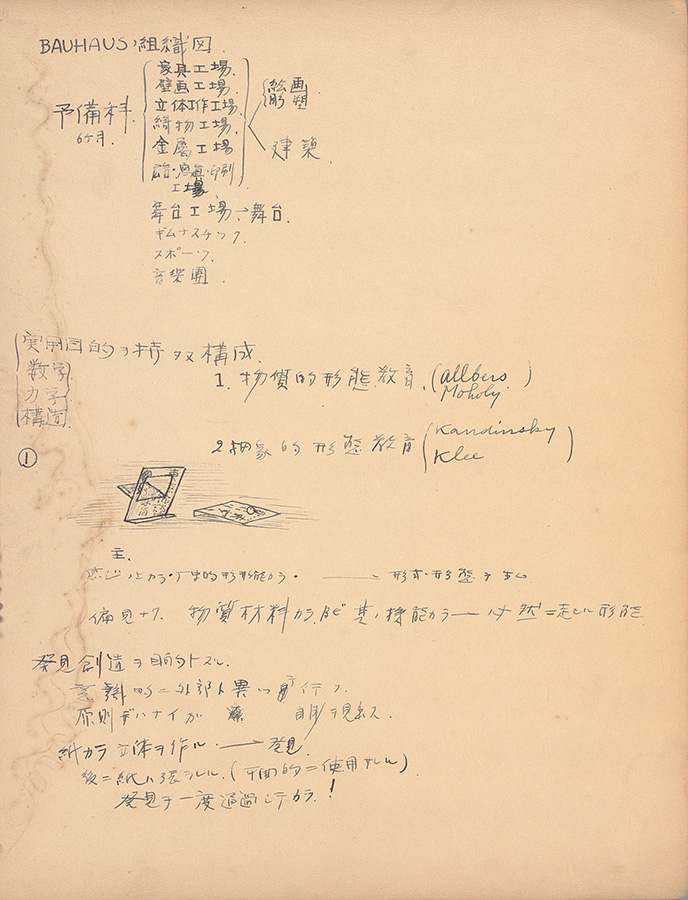 BAUHAUS ノ組織図
予備科
6ヶ月.
家具工場.
壁画工場.
立体工作工場.
織物工場.
金属工場
印刷
工場.
絵画
彫塑
建築.
舞台工場 → 舞台.
ギムナスチック.
スポーツ.
音楽團.
実用目的ヲ持タヌ構成.
数学
力学
構造
1. 物質的形態教育. (allbers
Moholy.)
2 抽象的形態教育 (Kandinsky
Klee)
①
主.
カラ
偏見ナク. 物質材料カラ 其ノ機能カラ 必然ニ
発見創造ヲ目的トスル.
意識的ニ外部ト異ッ
原則デハナイガ
紙カラ立体ヲ作ル. → 発見.
後ニ紙ハ張ラレル. (平面的ニ使用サレル).
発見ヲ一度通過シテカラ!